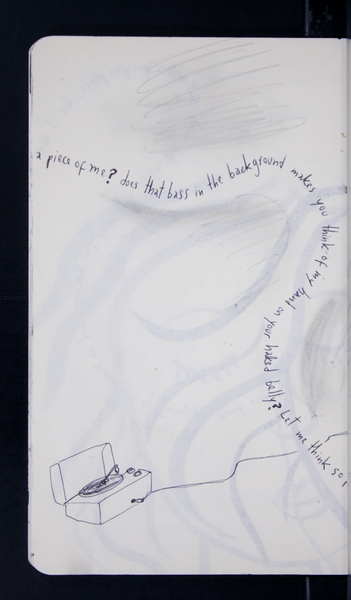 a piece of me? does that bass in the background makes you think of my hand on your naked belly? Let me think so,